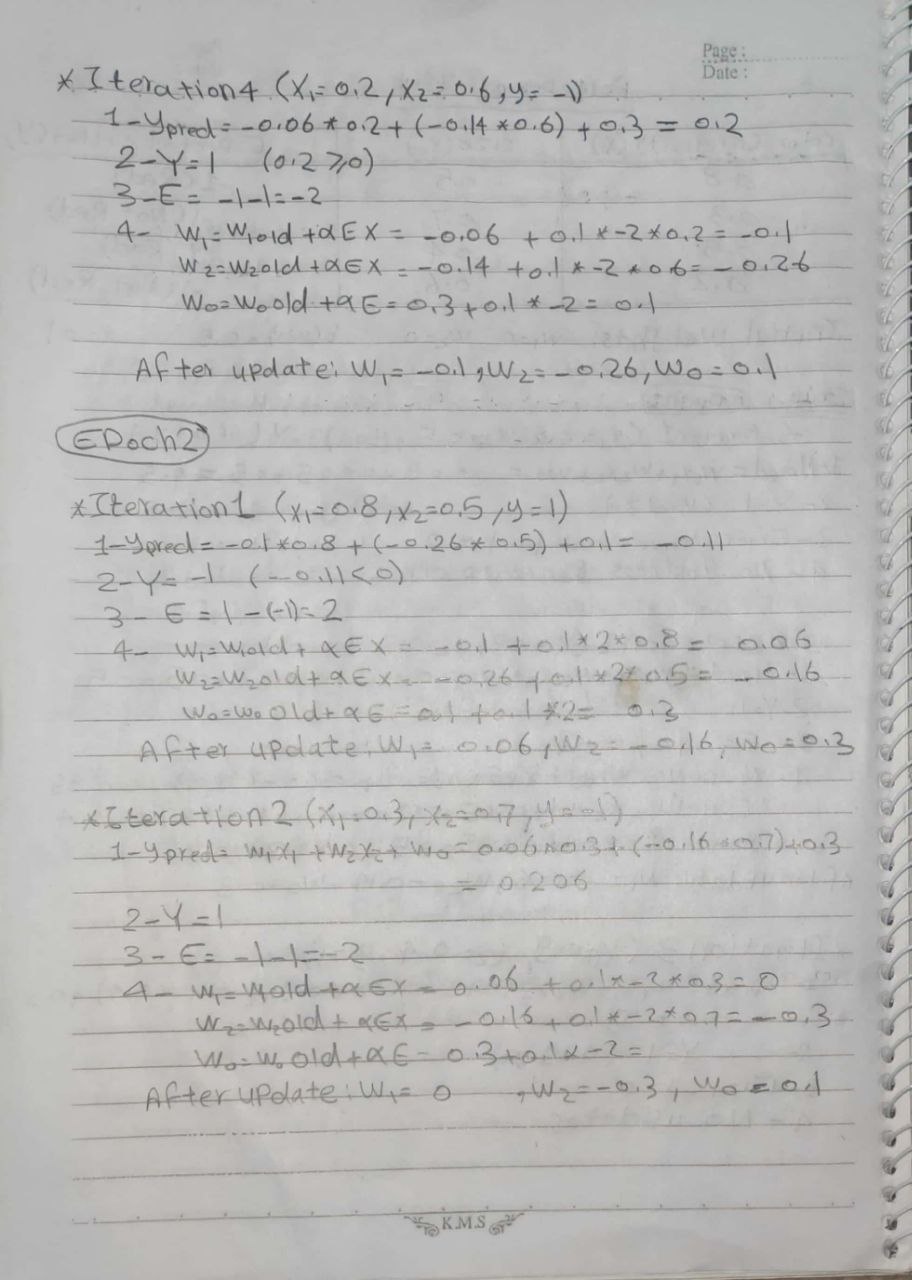 Page :
Date :
* Iteration 4 (X₁=0.2, X₂=0.6, y=-1)
1-Ypred = -0.06 * 0.2 + (-0.14 * 0.6) + 0.3 = 0.2
2-Y=1 (0.2 ≥ 0)
3-E = -1-1=-2
4- W₁=W₁old +αEX = -0.06 + 0.1 * -2 * 0.2 = -0.1
W₂=W₂old+αEX = -0.14 +0.1 * -2 * 0.6 = -0.26
W₀=W₀old +αE = 0.3+0.1 * -2 = 0.1
After update: W₁ = -0.1, W₂=-0.26, W₀ = 0.1
EPoch2
*Iteration1 (X₁=0.8, X₂=0.5, y=1)
1-Ypred = -0.1*0.8 + (-0.26 * 0.5) +0.1 = -0.11
2-Y= -1 (-0.11<0)
3 - E = 1 -(-1)= 2
4- W₁=W₁old+ αEX = -0.1 +0.1*2*0.8 = 0.06
W₂=W₂old+ αEX = -0.26 +0.1 *2*0.5= -0.16
W₀=W₀ old+ αE = 0.1 +0.1 *2= 0.3
After update: W₁= 0.06, W₂ = -0.16, W₀=0.3
*Iteration2 (X₁=0.3, X₂=0.7, y=-1)
1-Ypred= W₁X₁ +W₂X₂+ W₀=0.06*0.3+(-0.16*0.7)+0.3
= 0.206
2-Y=1
3 - E= -1-1=-2
4- W₁=W₁old+αEX = 0.06 +0.1*-2*0.3=0
W₂=W₂old+ αEX = -0.16+0.1*-2*0.7=-0.3
W₀=W₀ old+αE = 0.3+0.1*-2=
After update: W₁= 0 , W₂=-0.3, W₀ = 0.1
K.M.S